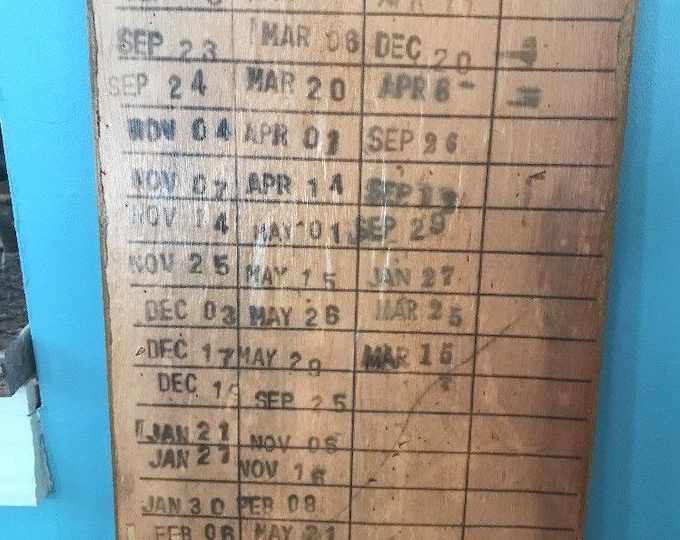 SEP 23 MAR 06 DEC 20
SEP 24 MAR 20 APR 6
NOV 04 APR 01 SEP 26
NOV 07 APR 14 SEP
NOV 14 MAY 01 SEP 29
NOV 25 MAY 15 JAN 27
DEC 03 MAY 26 MAR 25
DEC 17 MAY 29 MAR 15
DEC SEP 25
JAN 21 NOV 06
JAN 27 NOV
JAN 30 FEB 08
FEB 06 MAY 21